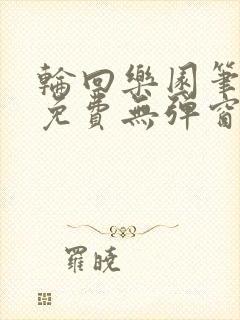 輪回樂園筆
免費無彈窗
羅曉